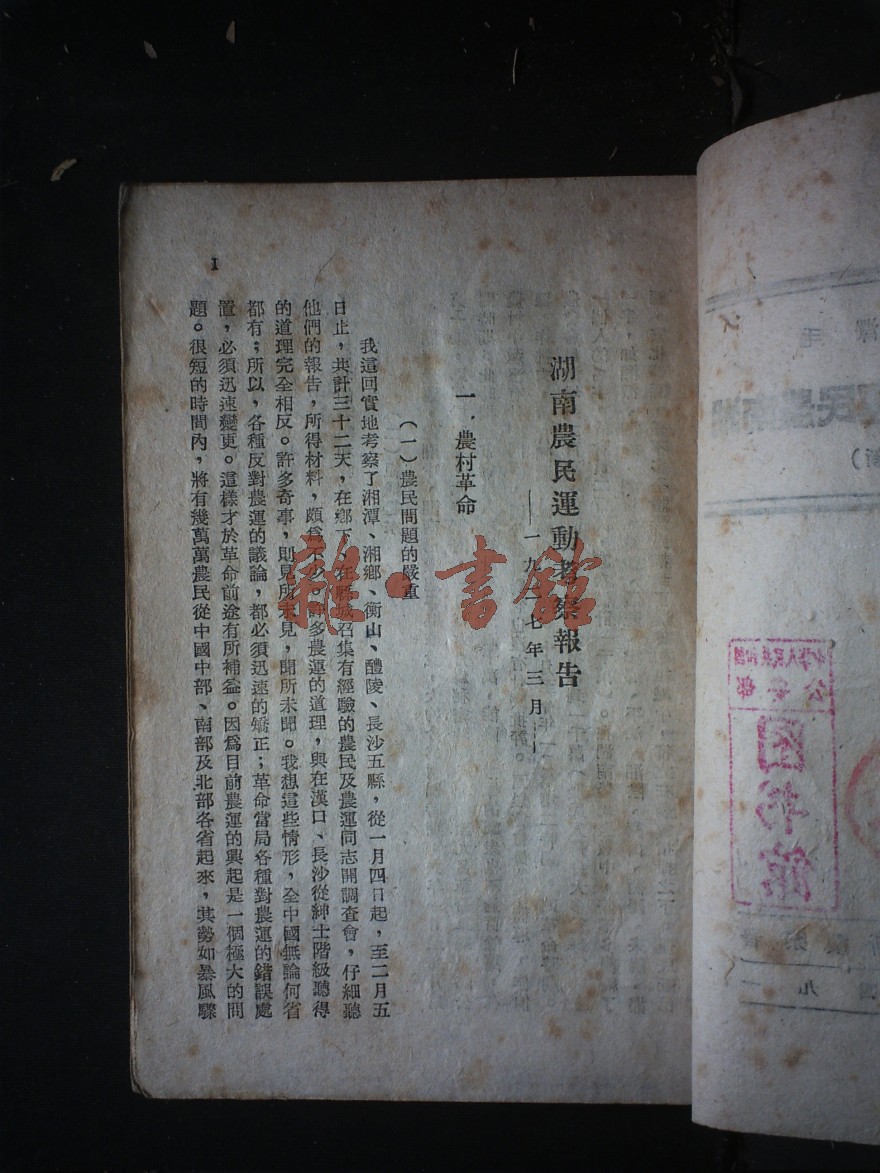 湖南農民運動考察報告
——一九二七年三月——
一．農村革命
（一）農民問題的嚴重
我這回實地考察了湘潭、湘鄉、衡山、醴陵、長沙五縣，從一月四日起，至二月五
日止，共計三十二天，在鄉下、在縣城召集有經驗的農民及農運同志開調查會，仔細聽
他們的報告，所得材料，頗爲不少。許多農運的道理，與在漢口、長沙從紳士階級聽得
的道理完全相反。許多奇事，則見所未見，聞所未聞。我想這些情形，全中國無論何省
都有；所以，各種反對農運的議論，都必須迅速的矯正；革命當局各種對農運的錯誤處
置，必須迅速變更。這樣才於革命前途有所補益。因爲目前農運的興起是一個極大的問
題。很短的時間內，將有幾萬萬農民從中國中部、南部及北部各省起來，其勢如暴風驟
1
雜·書館
图书馆